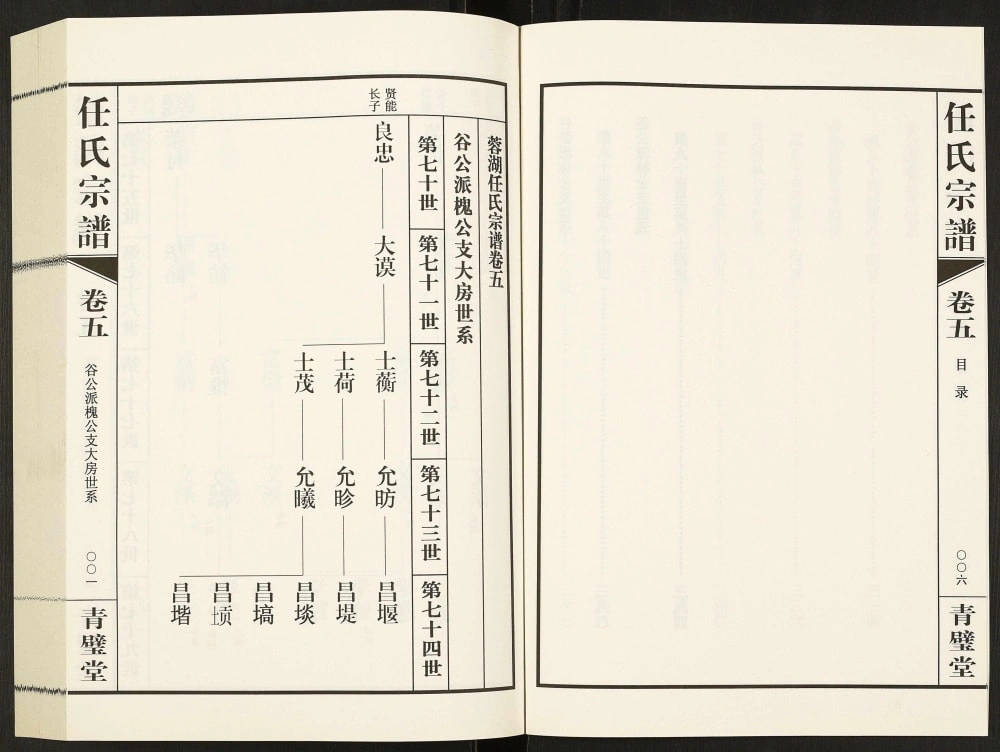 任氏宗譜
卷五
目录
〇〇六
青璧堂
蓉湖任氏宗谱卷五
谷公派槐公支大房世系
第七十世
第七十一世
第七十二世
第七十三世
第七十四世
贤能
长子
良忠
大谟
士蘅
允昉
昌堰
士荷
允昣
昌堤
士茂
允曦
昌埮
昌塙
昌㙂
昌堦
任氏宗譜
卷五
谷公派槐公支大房世系
〇〇一
青璧堂